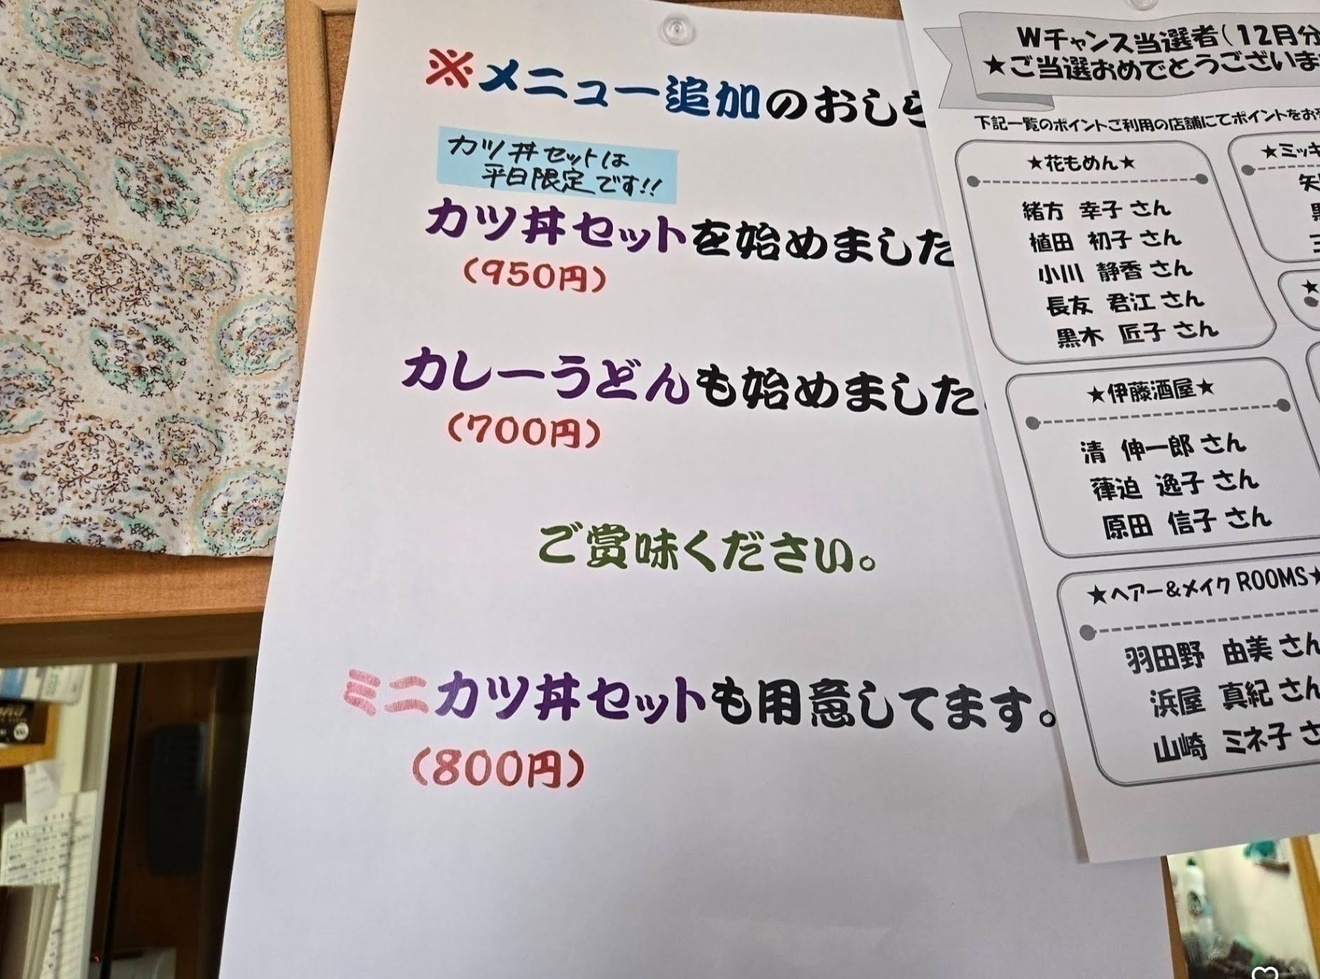 ※メニュー追加のおしら
カツ丼セットは
平日限定です!!
カツ丼セットを始めました
(950円)
カレーうどんも始めました
(700円)
ご賞味ください。
ミニカツ丼セットも用意してます。
(800円)
Wチャンス当選者(12月分
★ご当選おめでとうございま
下記一覧のポイントご利用の店舗にてポイントをお
★花もめん★
緒方 幸子さん
植田 初子さん
小川 静香さん
長友 君江さん
黒木 匠子さん
★ミッキ
★伊藤酒屋★
清 伸一郎さん
逸子さん
原田 信子さん
★ヘアー&メイクROOMS★
羽田野 由美さん
浜屋 真紀さん
山崎 ミネ子さ